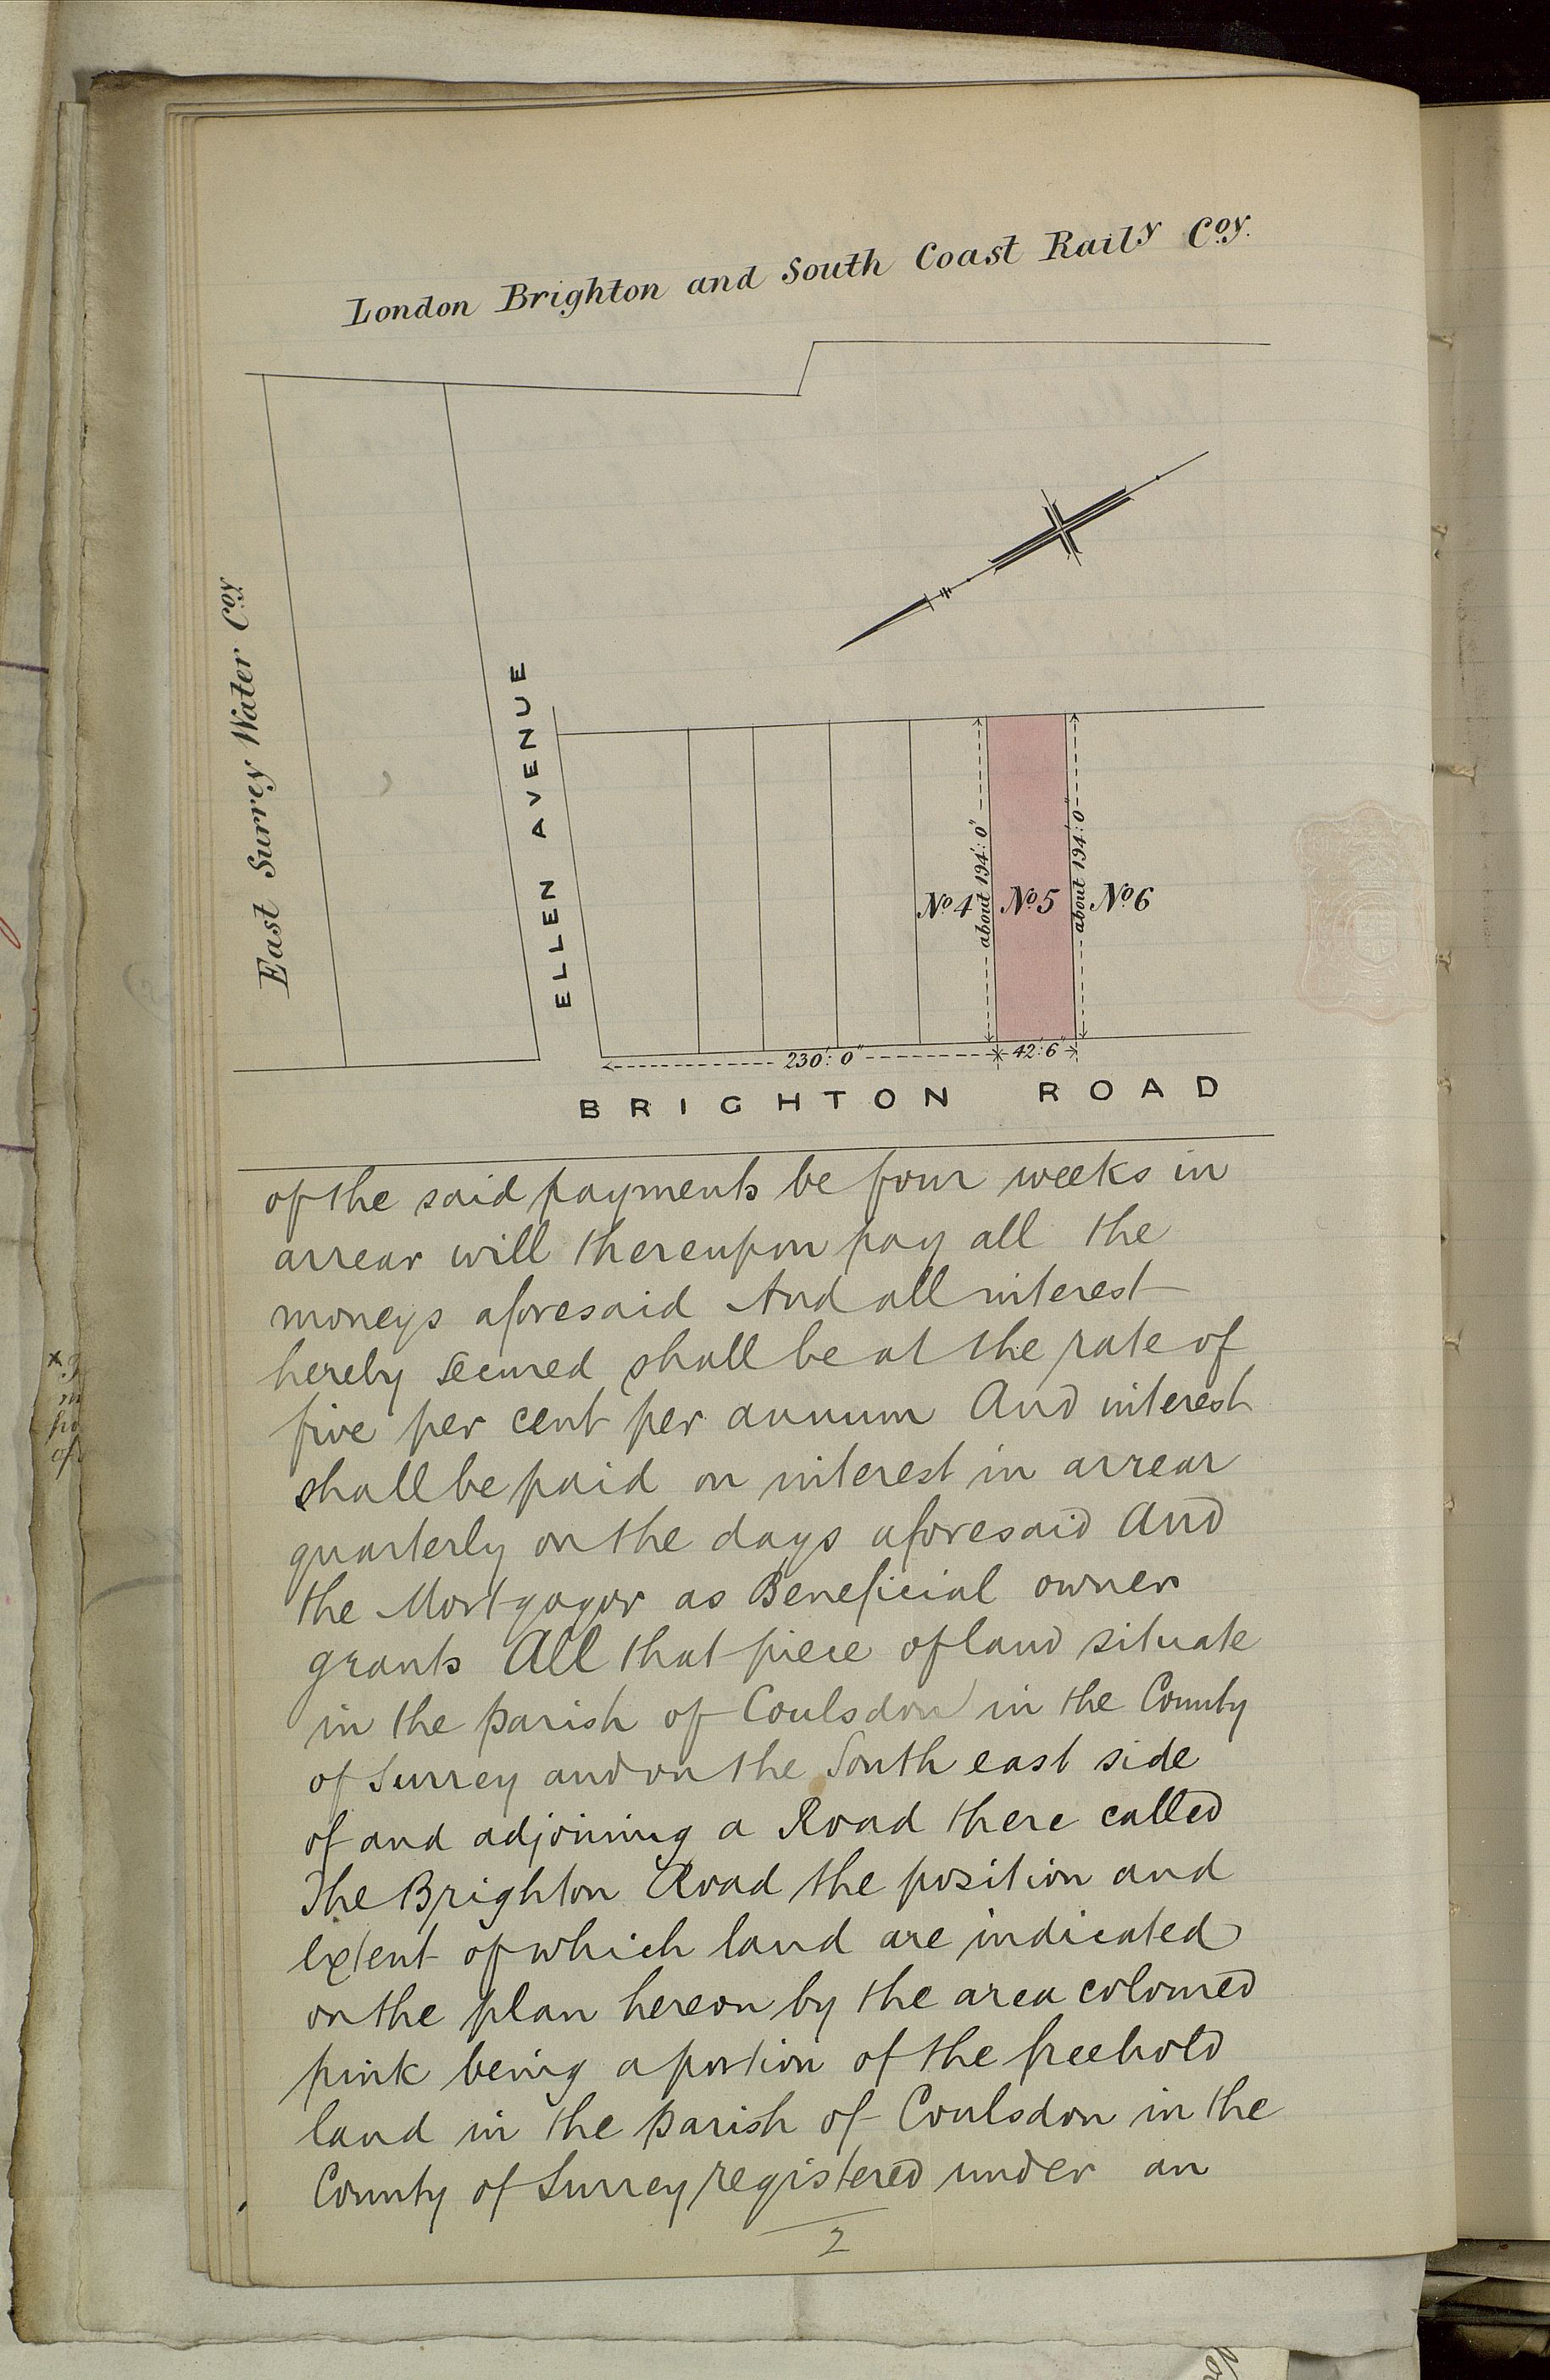 London Brighton and South Coast Raily Coy.
East Surrey Water Coy
ELLEN AVENUE
No 4
about 194': 0"
No 5
about 194': 0"
No 6
230': 0"
42': 6"
BRIGHTON ROAD
of the said payments be four weeks in
arrear will thereupon pay all the
moneys aforesaid And all interest
hereby secured shall be at the rate of
five per cent per annum And interest
shall be paid on interest in arrear
quarterly on the days aforesaid And
the Mortgagor as Beneficial owner
grants All that piece of land situate
in the parish of Coulsdon in the County
of Surrey and on the South east side
of and adjoining a Road there called
The Brighton Road the position and
extent of which land are indicated
on the plan hereon by the area coloured
pink being a portion of the freehold
land in the parish of Coulsdon in the
County of Surrey registered under an
2